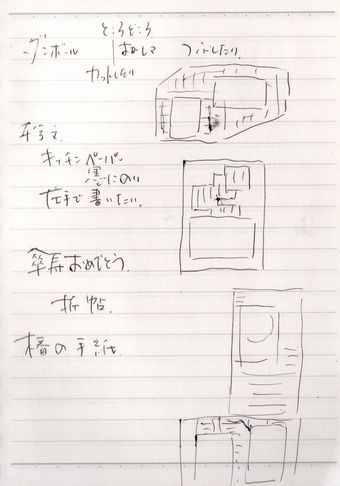 ダンボール
ところどころ
はがして
つぶしたり
カットしたり
キッチンペーパー
墨にのり
左手で書いたり
傘寿おめでとう
折帖
の手紙